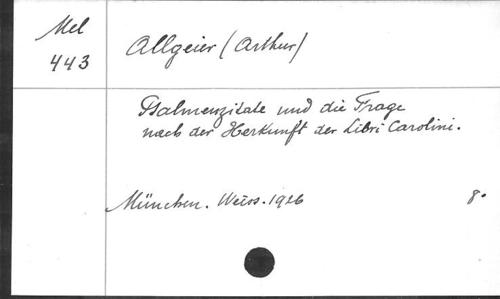 Mel
443
Allgeier (Arthur)
Psalmenzitate und die Frage
nach der Herkunft der Libri Carolini.
München. Weiss. 1926 8°